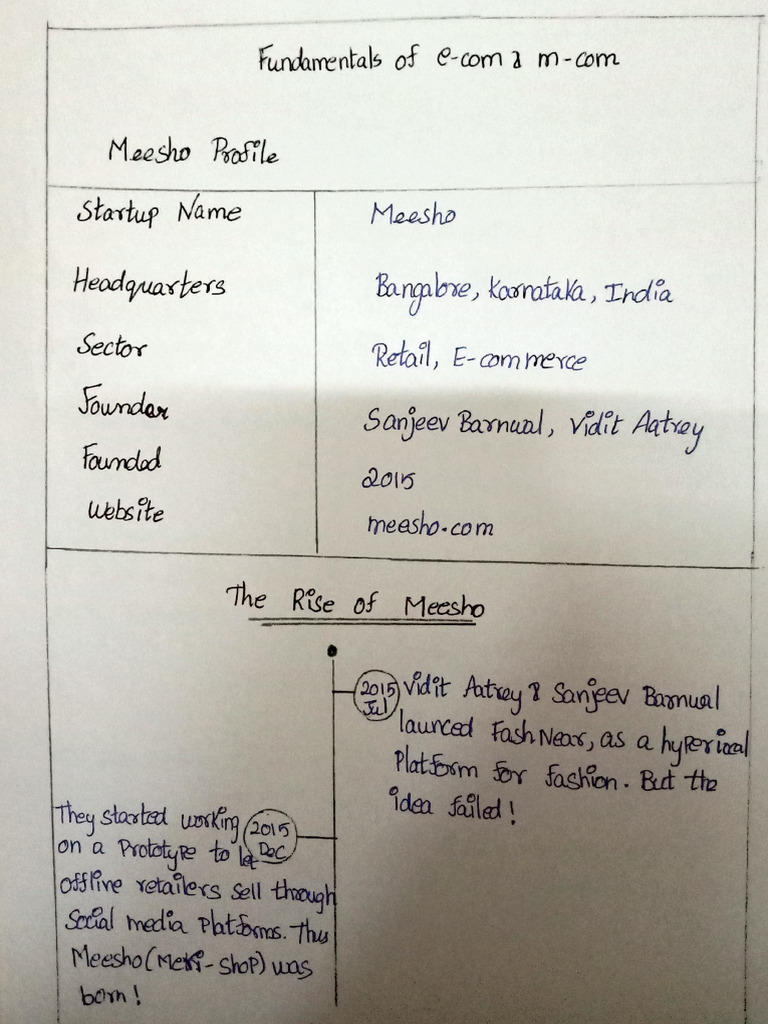 Fundamentals of e-com & m-com
Meesho Profile
Startup Name Meesho
Headquarters Bangalore, Karnataka, India
Sector Retail, E-commerce
Founder Sanjeev Barnwal, Vidit Aatrey
Founded 2015
Website meesho.com
The Rise of Meesho
2015 Jul
Vidit Aatrey & Sanjeev Barnwal
launced FashNear, as a
Platform for fashion. But the
idea failed!
2015 Dec
They started working
on a Prototype to let
offline retailers sell through
Social media Platforms. Thus
Meesho (Meri-Shop) was
born!